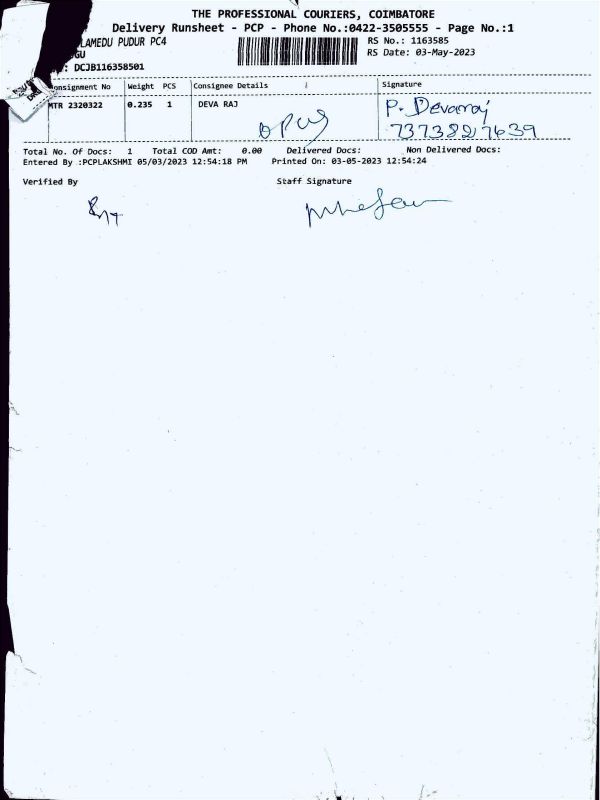 THE PROFESSIONAL COURIERS, COIMBATORE
Delivery Runsheet - PCP - Phone No.:0422-3505555 - Page No.:1
LAMEDU PUDUR PC4
RS No.: 1163585
GU
RS Date: 03-May-2023
: DCJB116358501
onsignment No Weight PCS Consignee Details Signature
MTR 2320322 0.235 1 DEVA RAJ P. Devaraj
7373827639
Total No. Of Docs: 1 Total COD Amt: 0.00 Delivered Docs: Non Delivered Docs:
Entered By :PCPLAKSHMI 05/03/2023 12:54:18 PM Printed On: 03-05-2023 12:54:24
Verified By Staff Signature